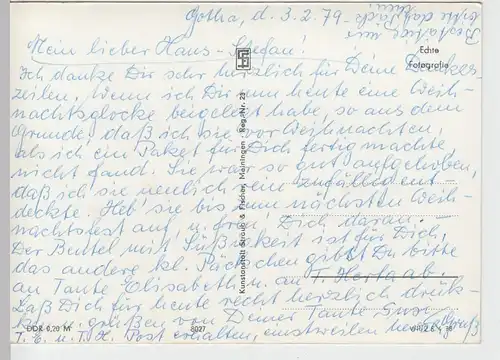 Gotha, d. 3.2.79.
Bestätige mir
bitte das Päckchen!
Mein lieber Hans-Stefan!
Echte
Fotografie
Ich danke Dir sehr herzlich für Deine Dankes-
zeilen, wenn ich Dir nun heute eine Weih-
nachtsglocke beigelegt habe, so aus dem
Grunde, daß ich sie vor Weihnachten,
als ich ein Paket für Dich fertig machte,
nicht fand. Sie war so gut aufgehoben,
daß ich sie neulich rein zufällig ent-
deckte. Heb' sie bis zum nächsten Weih-
nachtsfest auf, u. freu' Dich daran.
Der Beutel mit Süßigkeit ist für Dich,
das andere kl. Päckchen gibst Du bitte
an Tante Elisabeth u. an T. Herta ab.
Laß Dich für heute recht herzlich drük-
ken u. grüßen von Deiner Tante Suse
T. E. u. T. H. Post erhalten, einstweilen Gruß
Kunstanstalt Straub & Fischer, Meiningen Reg.-Nr. 23
DDR 0,20 M
8027